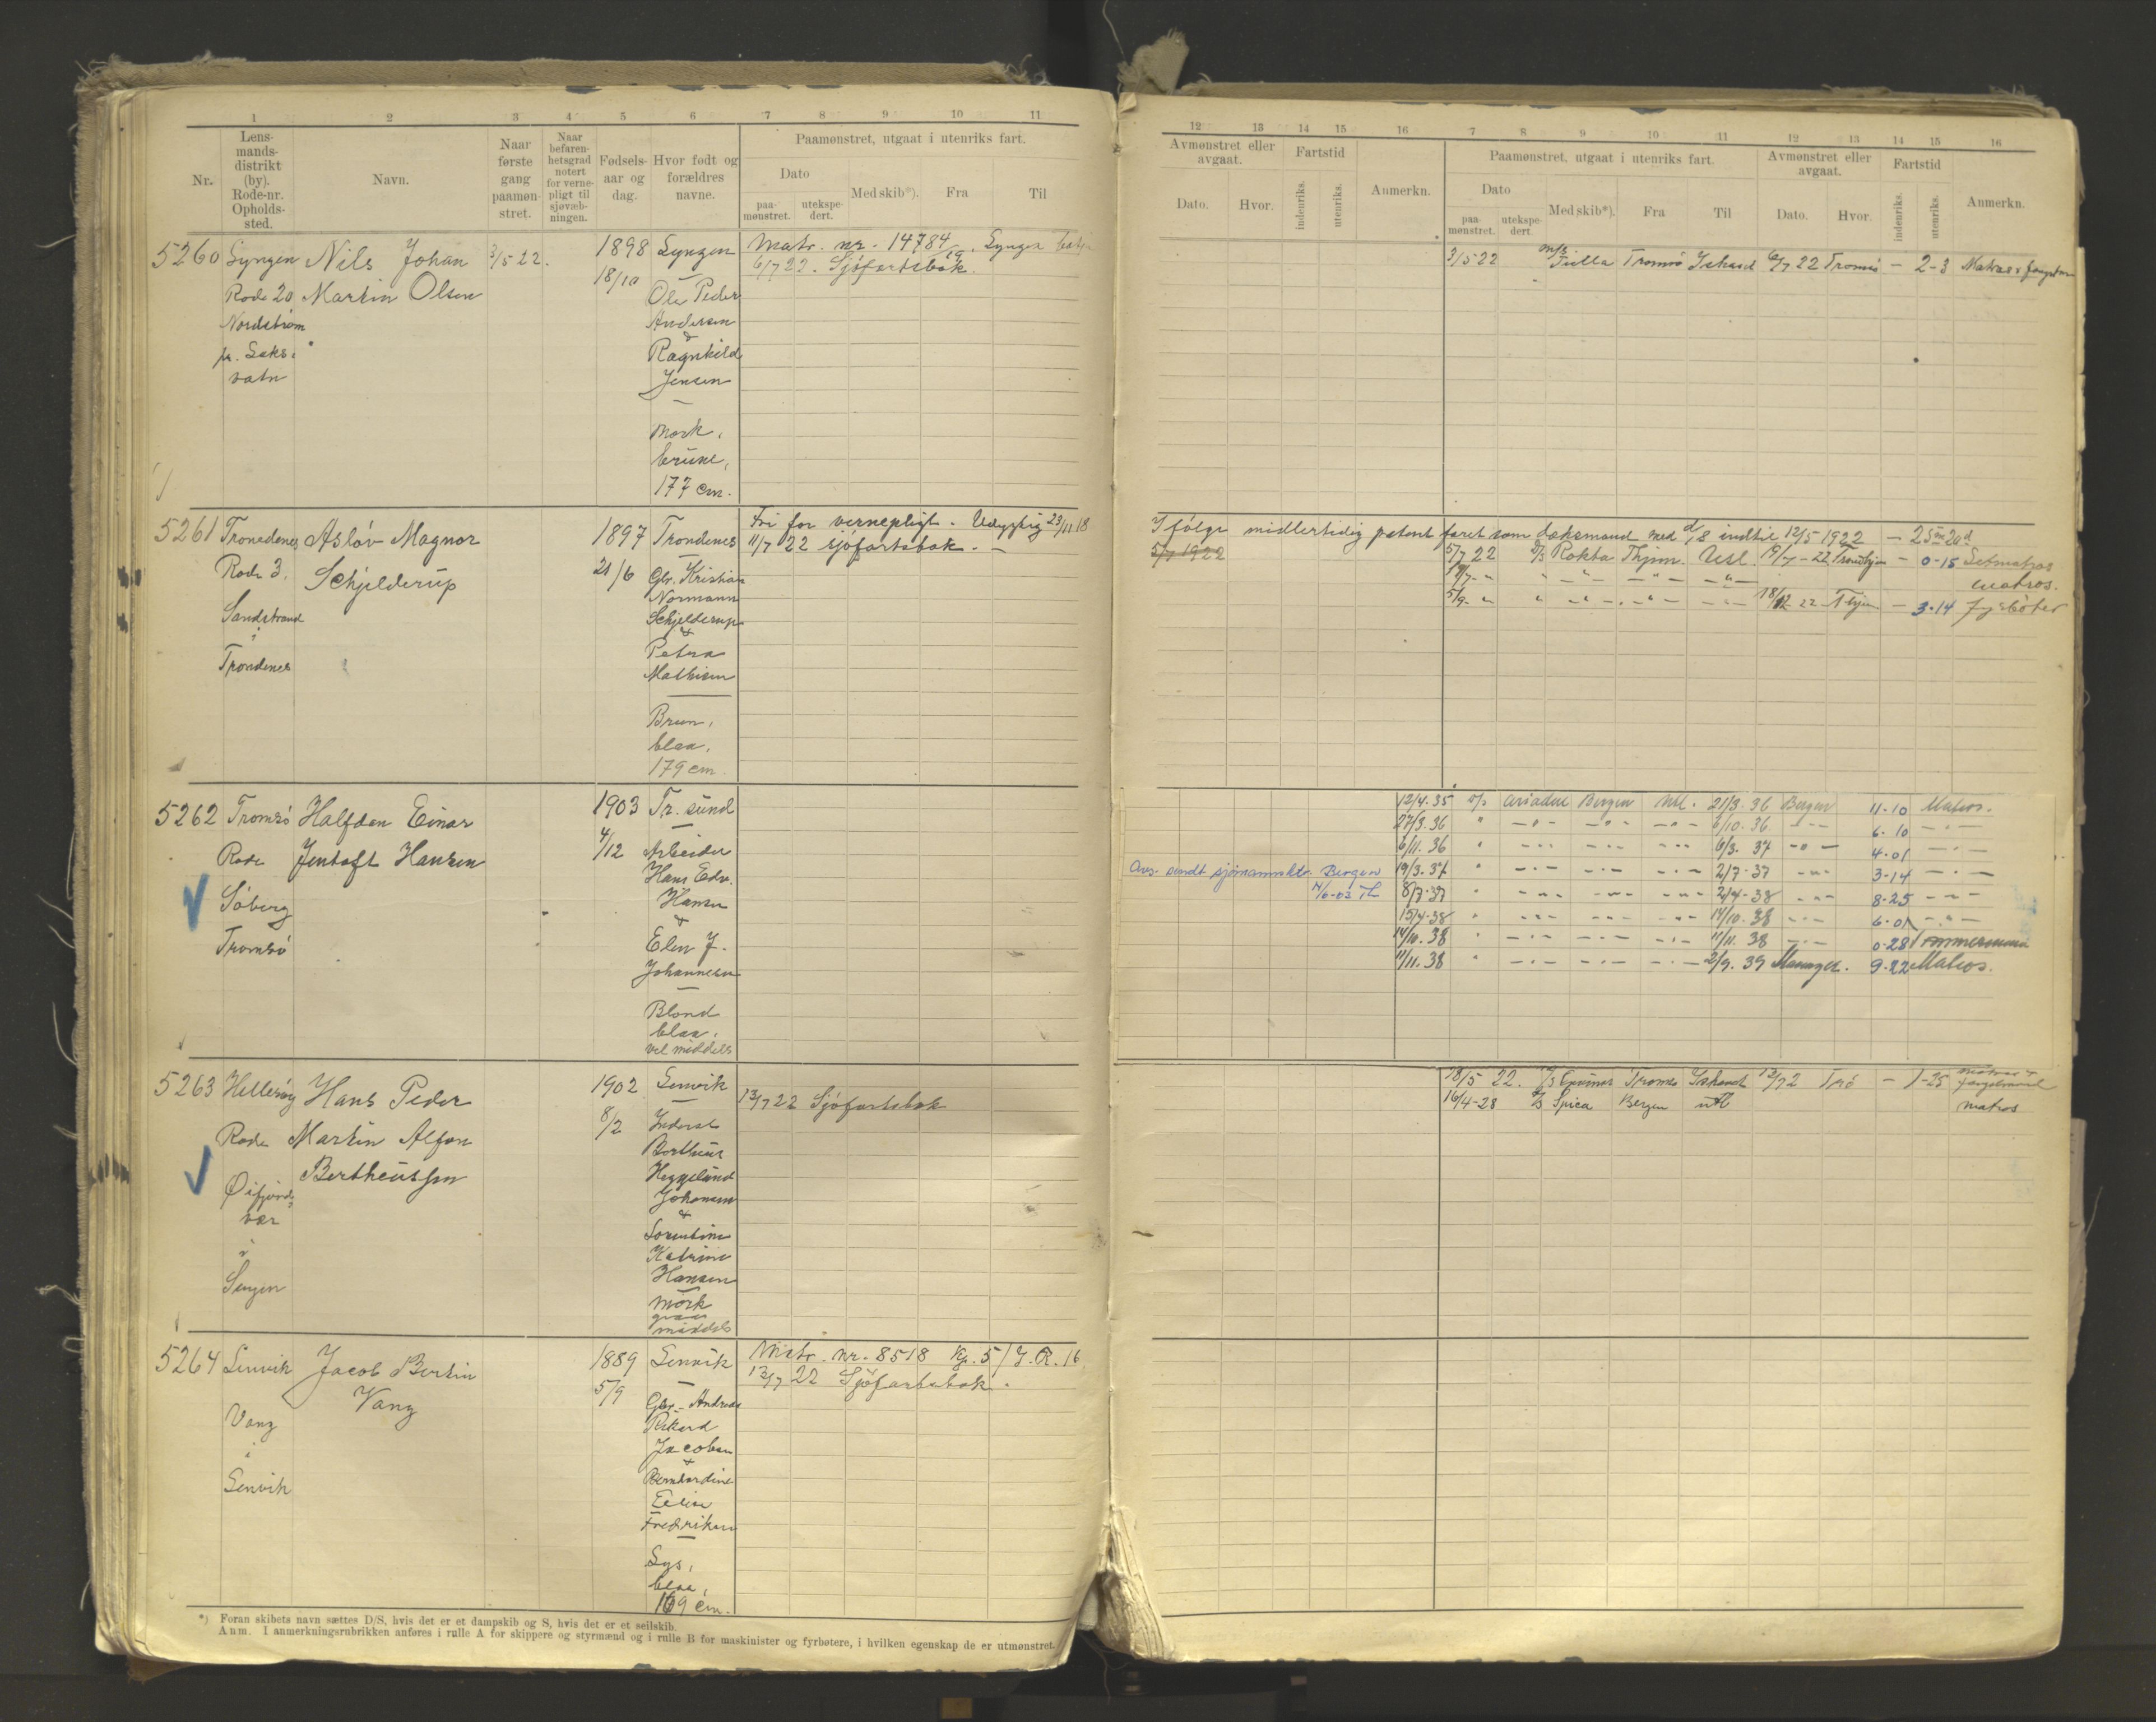 1 2 3 4 5 6 7 8 9 10 11
Nr.
Lens-
mands-
distrikt
(by).
Rode-nr.
Opholds-
sted.
Navn.
Naar
første
gang
paamøn-
stret.
Naar
befaren-
hetsgrad
notert
for verne-
pligt til
sjøvæb-
ningen.
Fødsels-
aar og
dag.
Hvor født og
forældres
navne.
Paamønstret, utgaat i utenriks fart.
Dato
paa-
mønstret.
utekspe-
dert.
Med skib*).
Fra
Til
5260
Lyngen
Rode 20
Nordstrøm
Nils Johan
Martin Olsen
3/5 22.
1898
18/10
Lyngen
Ole Peder
Andersen
&
Ragnhild
Jensen
mørk,
brune,
177 cm.
Matr. nr. 14784 Lyngen
6/7 22. Sjöfartsbok.
5261
Trondenes
Rode 3.
Sandstrand
i
Trondenes
Asløv Magnor
Schjelderup
1897
21/6
Trondenes
Gbr. Kristian
Normann
Schjelderup
&
Petra
Mathisen
Brun,
blaa,
179 cm
Fri for vernepligt. Udygtig 23/11 18
11/7 22 sjöfartsbok. —
5262
Tromsö
Rode
Söberg
Tromsö
Halfdan Einar
Jentoft Hansen
1903
4/12
Tr. sund
Arbeider
Hans Edv.
Hansen
&
Elen J.
Johannesen
Blond
blaa,
vel middels
5263
Hillesöy
Rode
Øifjord
vær
i
Senjen
Hans Peder
Martin Alfon
Bertheussen
1902
8/2
Lenvik
Inderst
Bertheus
Heggelund
Johansen
&
Lorentine
Katrine
Hansen
mörk
graa
middels
13/7 22 Sjöfartsbok
5264
Lenvik
Vang
i
Lenvik
Jacob Bertin
Vang
1889
5/9
Lenvik
Gbr. Andreas
Rikard
Jacobsen
&
Bernhardine
Elise
Fredriksen
Lys,
blaa,
169 cm.
Matr. nr. 8518 Kp. 5/ J. R. 16
13/7 22 Sjöfartsbok.
*) Foran skibets navn sættes D/S, hvis det er et dampskib og S, hvis det er et seilskib.
Anm. I anmerkningsrubrikken anføres i rulle A for skippere og styrmænd og i rulle B for maskinister og fyrbøtere, i hvilken egenskap de er utmønstret.
12 13 14 15 16 7 8 9 10 11 12 13 14 15 16
Avmønstret eller
avgaat.
Dato.
Hvor.
Fartstid
indenriks.
utenriks.
Anmerkn.
Paamønstret, utgaat i utenriks fart.
Dato
paa-
mønstret.
utekspe-
dert.
Med skib*).
Fra
Til
Avmønstret eller
avgaat.
Dato.
Hvor.
Fartstid
indenriks.
utenriks.
Anmerkn.
3/5 22 m/s Tromsö Ishavet 6/7 22 Tromsö — 2-3 Matros
Ifølge midlertidig patent faret som dæksmand med indtil 12/5 1922 — 25m 20d
5/7 1922
5/7 22 d/s Rokta Thjem. Utl. 19/7-22 Trondhjem — 0-15 Letmatros
matros.
5/9 - " 18/12 22 Thjem — 3-14 fyrböter
12/4.35 d/s Ariadne Bergen utl. 21/3.36 Bergen 11-10 Matros.
27/3.36 " — " — — " — — " — 6/10.36 — " — 6.10 — " —
6/11.36 " — " — — " — — " — 6/3. 37 — " — 4-01 — " —
Avs. sendt sjömannsktr. Bergen
19/3.37 " — " — — " — — " — 2/7-37 — " — 3-14 — " —
8/7-37 " — " — — " — — " — 2/4-38 — " — 8-25 — " —
15/4-38 " — " — — " — — " — 14/10.38 — " — 6-01 — " —
14/10.38 " — " — — " — — " — 11/11. 38 — " — 0-28 Tømmermann
11/11.38 " — " — — " — — " — 2/9. 39 9-22 Matros.
18/5 22. Tromsö Ishavet 13/7 22 Trö — 1-25 matros
16/4-28 d/s Spica Bergen utl matros